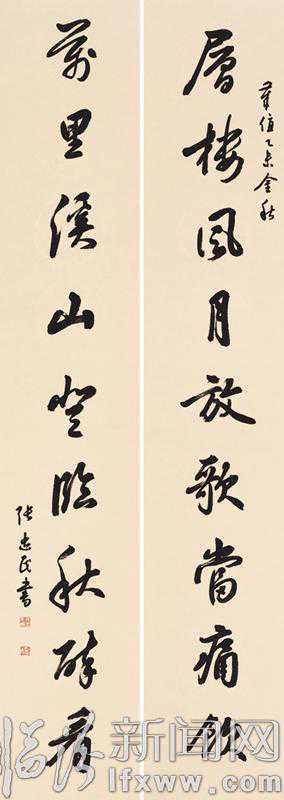 層樓風月放歌當痛飲
值乙未金秋
萬里溪山登臨秋醉看
張建民書
临汾新闻网
lfxww.com